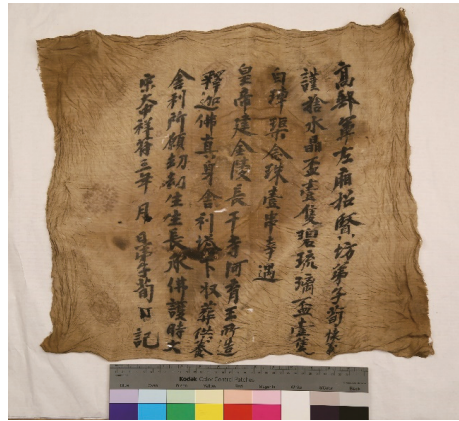 高郵軍左廂招賢坊弟子荀
謹捨水晶盃壹隻碧琉璃盃壹隻
白硨渠念珠壹串幸遇
皇帝建金陵長干寺阿育王所造
釋迦佛真身舍利塔下收葬供養
舍利所願劫劫生生長承佛護時大
宋大中祥符三年 月 日弟子荀 記
Kodak Color Control Patches